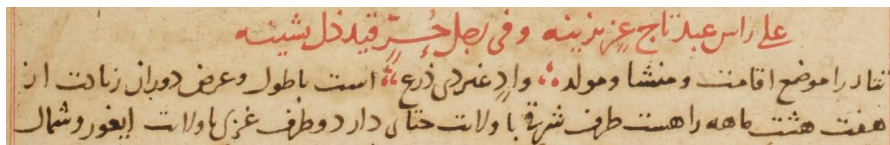 علی راس عبد تاج عز یزینه وفی رجل حر قید ذل یشینه
تتار را موضع اقامت و منشا و مولد واد غیر ذی زرع است با طول و عرض دور ان زیادت از
هفت هشت ماهه راهست طرف شرقی با ولات ختای دارد و طرف غربی با ولات ایغور و شمال